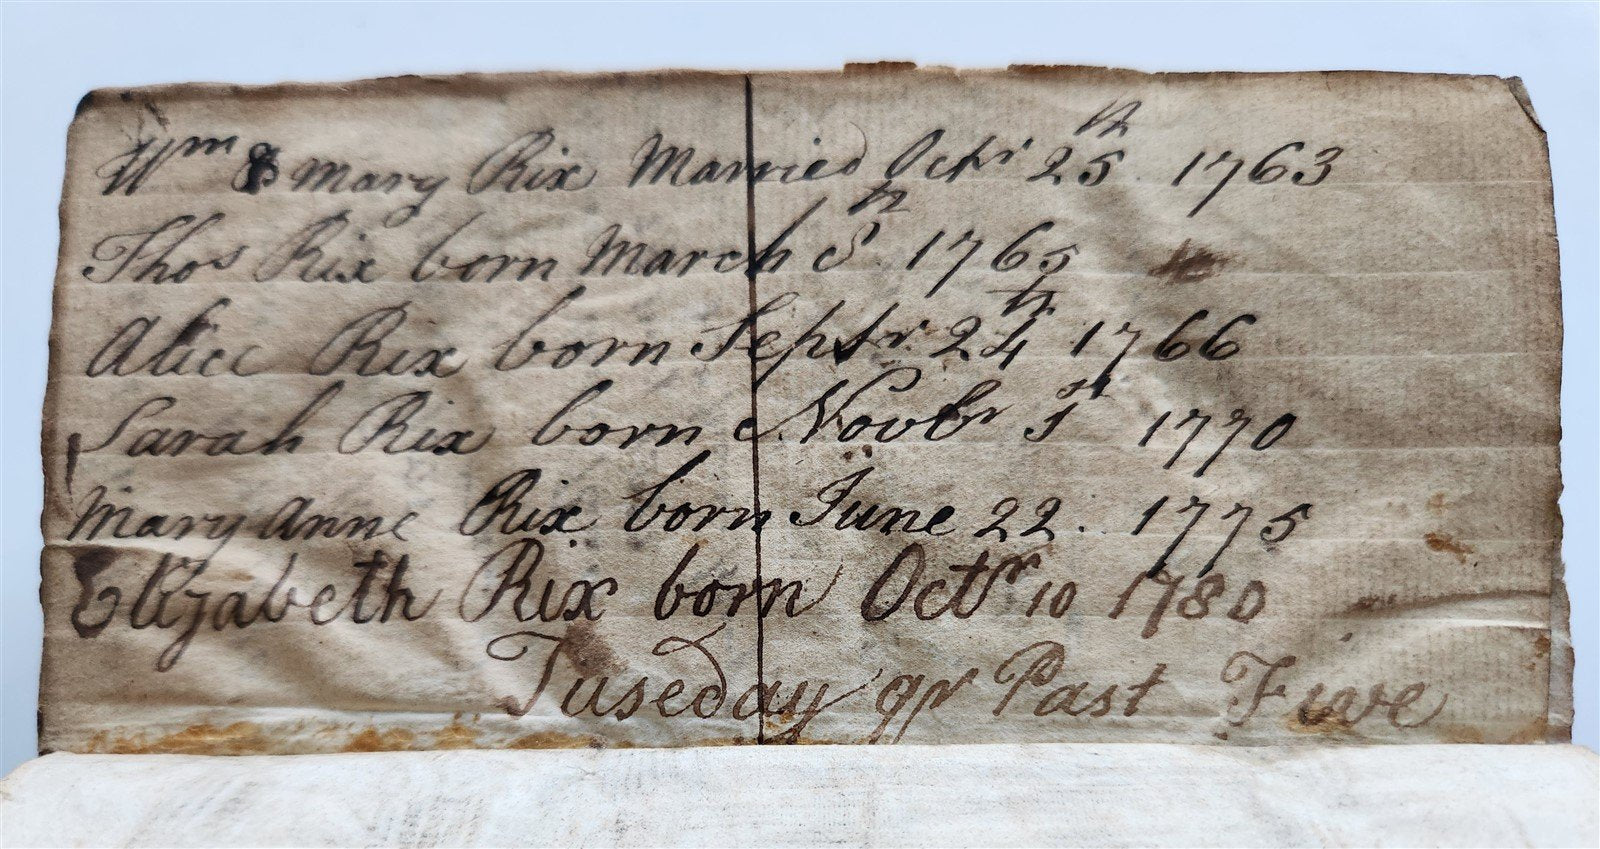 Wm & Mary Rix Married Octr 25th 1763
Thos Rix born March 8th 1765
Alice Rix born Septr 24th 1766
Sarah Rix born Novbr 1st 1770
Mary Anne Rix born June 22. 1775
Elizabeth Rix born Octr 10 1780
Tuseday qr Past Five